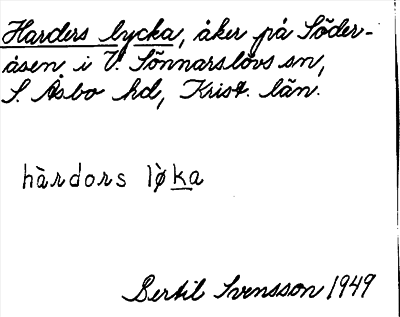 Harders lycka, åker på Söder-
åsen i V. Sönnarslövs sn,
S. Åsbo hd, Krist. län.
hàrdors lø̀ka
Bertil Svensson 1949